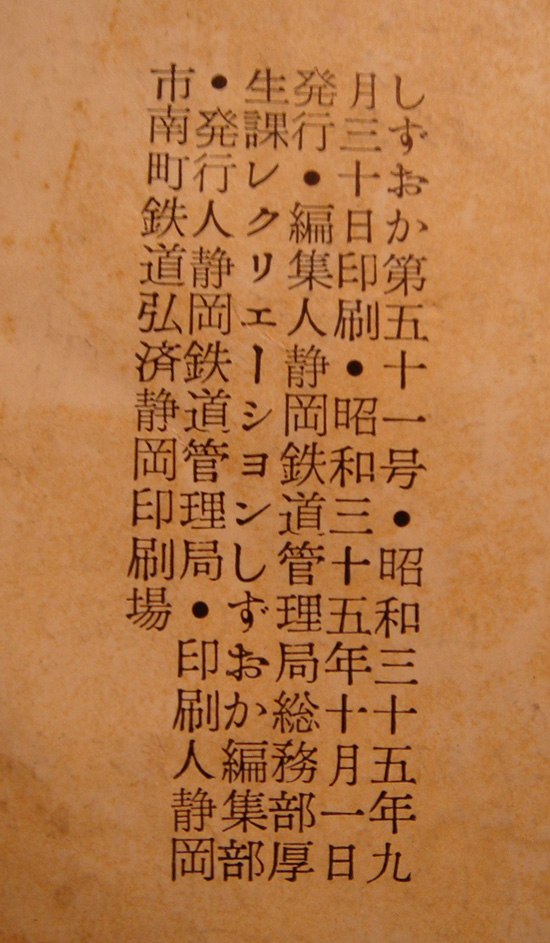 しずおか第五十一号●昭和三十五年九
月三十日印刷●昭和三十五年十月一日
発行●編集人静岡鉄道管理局総務部厚
生課レクリエーションしずおか編集部
●発行人静岡鉄道管理局●印刷人静岡
市南町鉄道弘済静岡印刷場